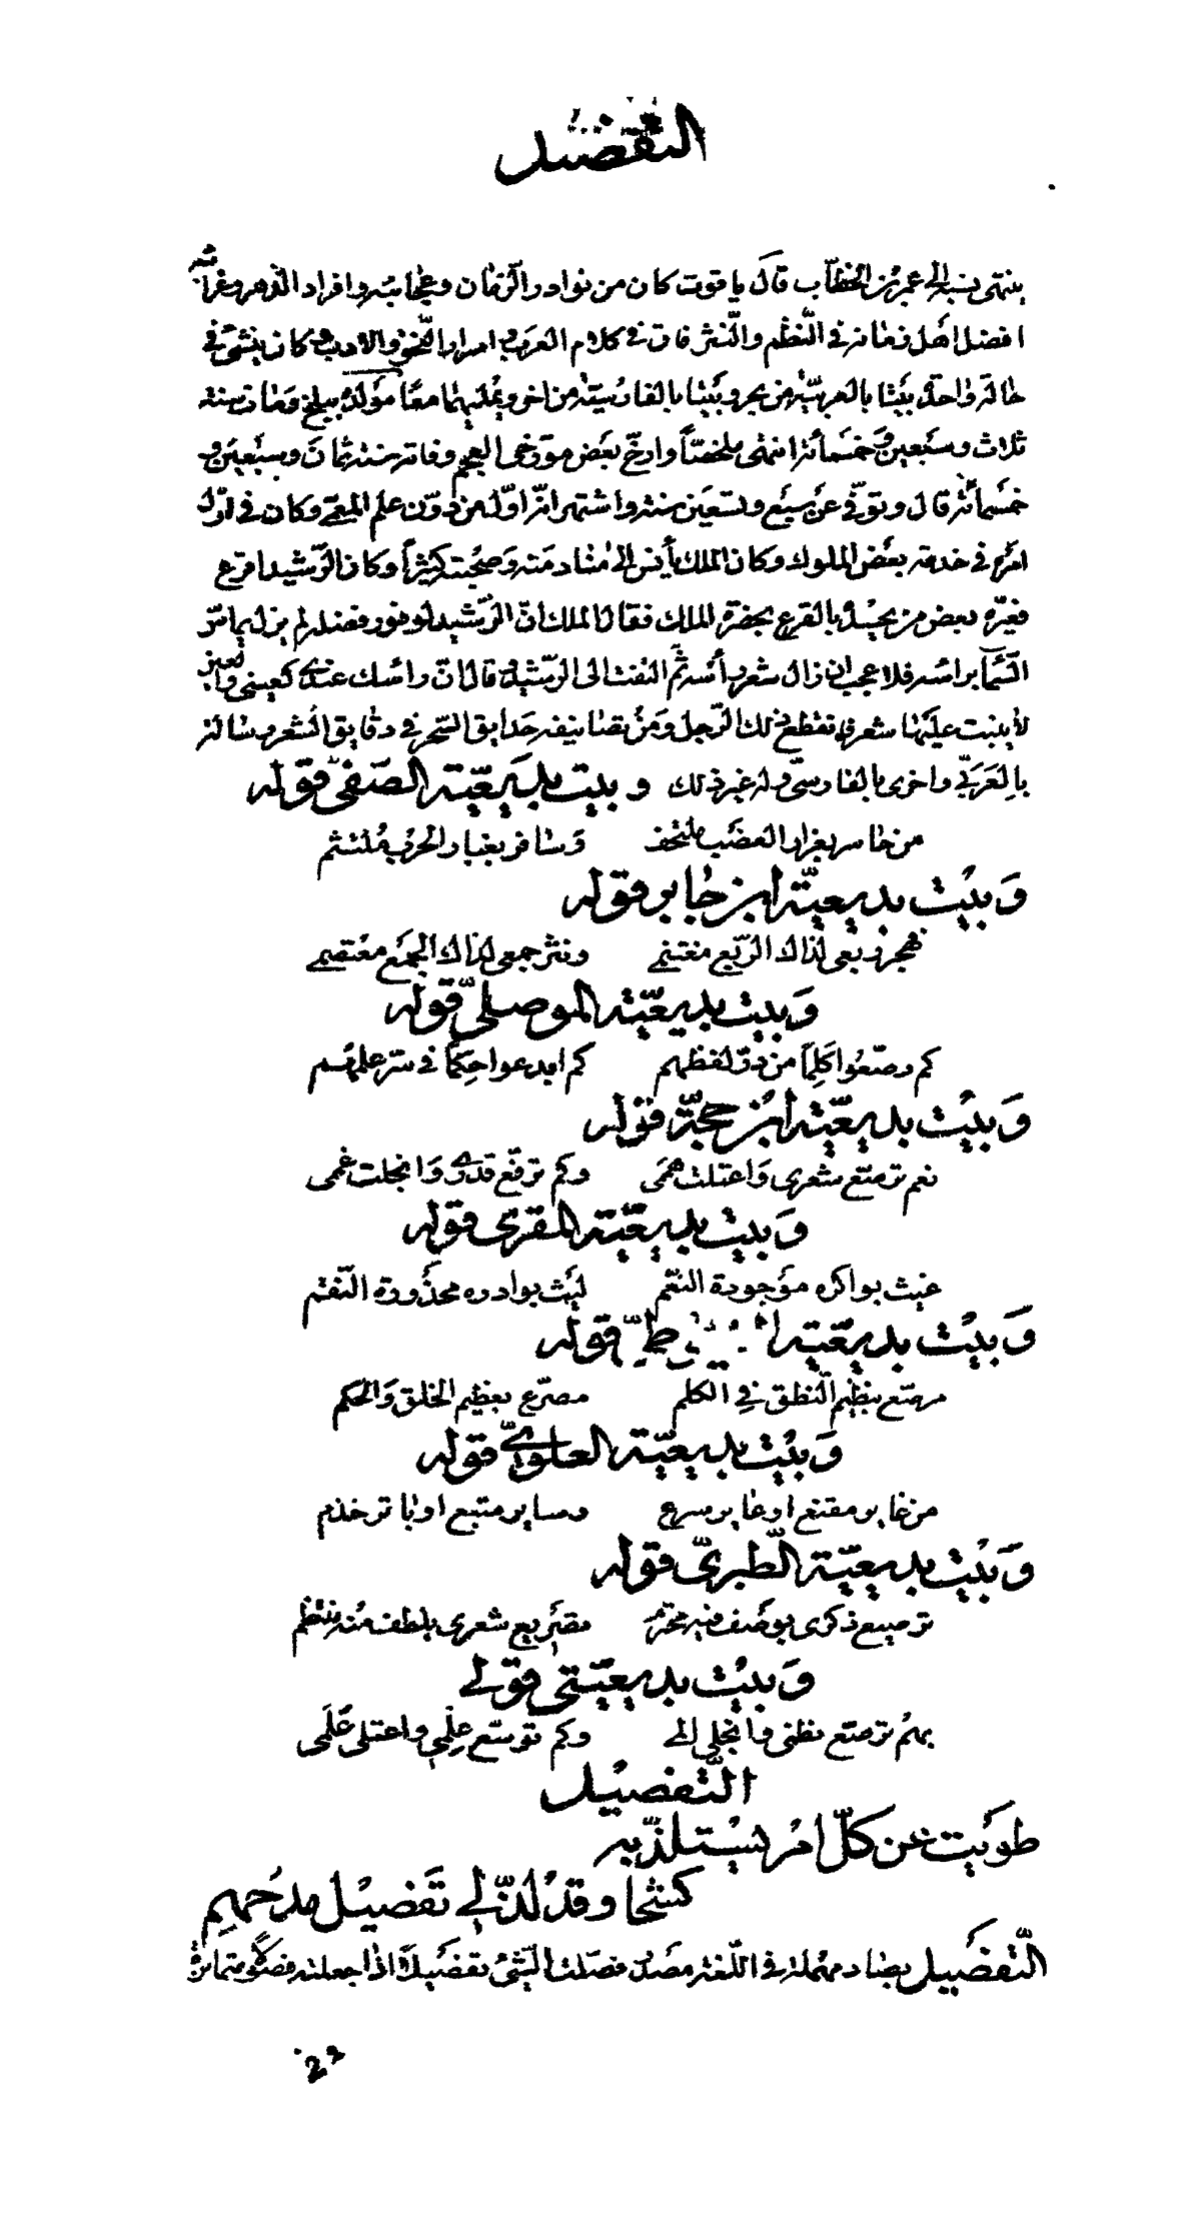 التفضيل
ينتهى نسبه الى عمر بن الخطاب قال ياقوت كان من نوادر الزمان وعجائبه وافراد الدهر وغرائبه
افضل اهل زمانه فى النظم والنثر فاق فى كلام العرب واسرار النحو والادب وكان ينشئ فى
حالة واحدة بيتا بالعربية من بحر وبيتا بالفارسية من اخر ويمليهما معا مولده ببلخ ومات سنة
ثلاث وسبعين وخمسمائة انتهى ملخصا وارخ بعض مورخى العجم وفاته سنة ثمان وسبعين و
خمسمائة قال وتوفى عن سبع وتسعين سنة واشتهر انه اول من دون علم المعمى وكان فى اول
امره فى خدمة بعض الملوك وكان الملك يأنس الى منادمته وصحبته كثيرا وكان الرشيد اقرع
فعيره بعض من يحسده بالقرع بحضرة الملك فقال الملك ان الرشيد لوفور فضله لم يزل يماس
السماء براسه فلا عجب ان زال شعر رأسه ثم التفت الى الرشيد فقال ان راسك عندى كعينى والعين
لا ينبت عليها شعر فانقطع ذلك الرجل ومن تصانيفه حدايق السحر فى دقايق الشعر ورسالة
بالعربى واخرى بالفارسى وله غير ذلك وبيت بديعية الصفى قوله
من خاسر بغرار العضب ملتحف وسافر بغبار الحرب ملتثم
وبيت بديعية ابن جابر قوله
فهجر ربعى لذاك الربع مغتنمى ونثر جمعى لذاك الجمع معتصمى
وبيت بديعية الموصلى قوله
كم رصعوا كلما من در لفظهم كم ابدعوا حكما فى سر علمهم
وبيت بديعية ابن حجة قوله
نعم ترصع شعرى واعتلت هممى وكم ترفع قدرى وانجلت غممى
وبيت بديعية المقرى قوله
غيث بواكره موجودة النعم ليث بوادره محذورة النقم
وبيت بديعية السيوطى قوله
مرصع بنظيم النطق فى الكلم مصرع بعظيم الخلق والحكم
وبيت بديعية العلوى قوله
من غابر مقنع او عابر سرع وساير متبع او باتر خذم
وبيت بديعية الطبرى قوله
ترصيع ذكرى بوصف فيه محترم تصريع شعرى بلطف منه منتظم
وبيت بديعيتى قولى
بهم ترصع نظمى وانجلى المى وكم توسع علمى واعتلى علمى
التفصيل
طويت عن كل امر يستلذ به
كشحا وقد لذ لى تفصيل مدحهم
التفصيل بصاد مهملة فى اللغة مصدر فصلت الشئ تفصيلا اذا جعلته فصولا متمايزة